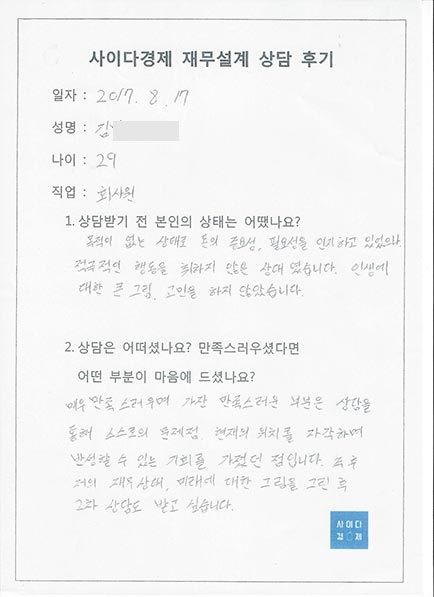 사이다경제 재무설계 상담 후기
일자 : 2017. 8. 17
성명 : 김
나이 : 29
직업 : 회사원
1. 상담받기 전 본인의 상태는 어땠나요?
목적이 없는 상태로 돈의 중요성, 필요성을 인지하고 있었으나
적극적인 행동을 취하지 않은 상태 였습니다. 인생에
대한 큰 그림, 고민을 하지 않았습니다.
2. 상담은 어떠셨나요? 만족스러우셨다면
어떤 부분이 마음에 드셨나요?
매우 만족스러우며 가장 만족스러운 부분은 상담을
통해 스스로의 문제점, 현재의 위치를 자각하며
반성할 수 있는 기회를 가졌던 점입니다. 추후
저의 재무상태, 미래에 대한 그림을 그린 후
2차 상담도 받고 싶습니다.
사이다
경제